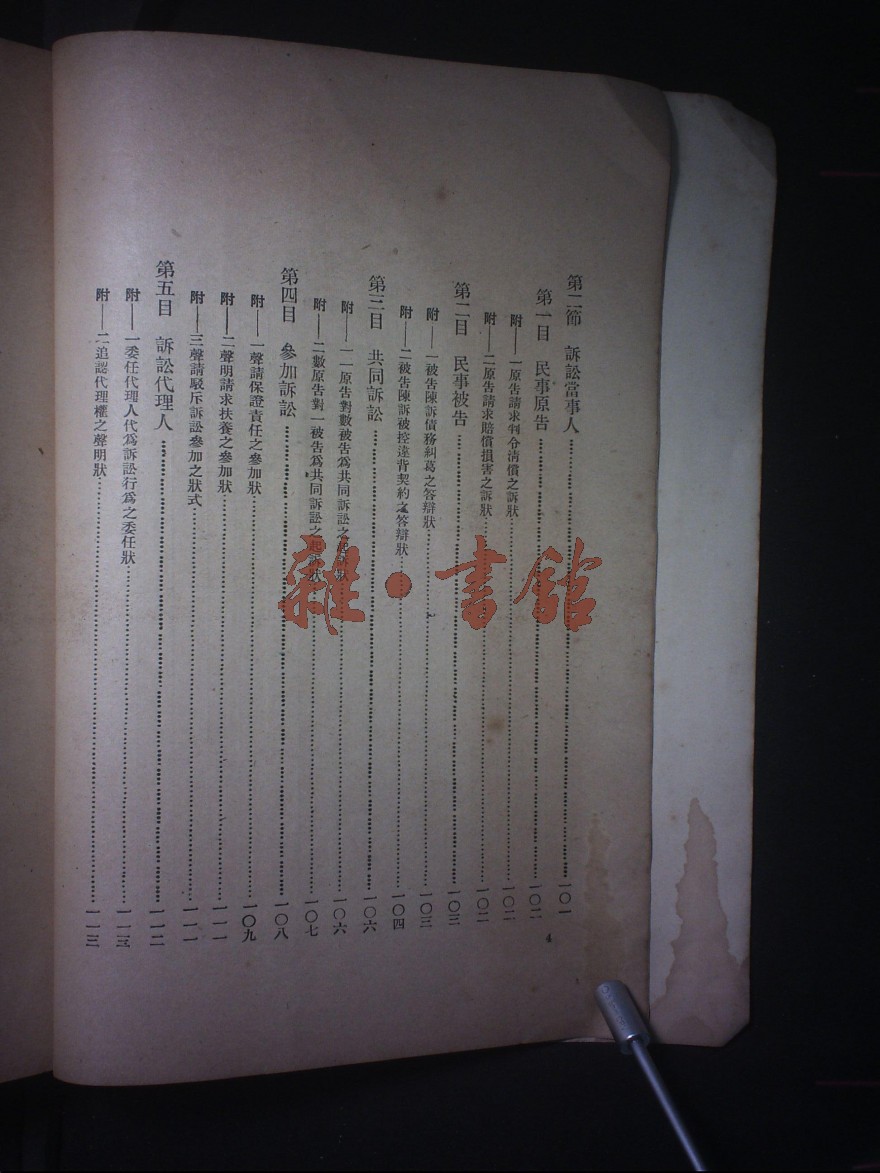 第二節　訴訟當事人……一〇一
第一目　民事原告……一〇二
附——一原告請求判令清償之訴狀……一〇二
附——二原告請求賠償損害之訴狀……一〇二
第二目　民事被告……一〇三
附——一被告陳訴債務糾葛之答辯狀……一〇三
附——二被告陳訴被控違背契約之答辯狀……一〇四
第三目　共同訴訟……一〇六
附——一一原告對數被告爲共同訴訟之起訴狀……一〇六
附——二數原告對一被告爲共同訴訟之起訴狀……一〇七
第四目　參加訴訟……一〇八
附——一聲請保證責任之參加狀……一〇九
附——二聲明請求扶養之參加狀……一一一
附——三聲請駁斥訴訟參加之狀式……一一一
第五目　訴訟代理人……一一二
附——一委任代理人代爲訴訟行爲之委任狀……一一三
附——二追認代理權之聲明狀……一一三
4
雜·書館